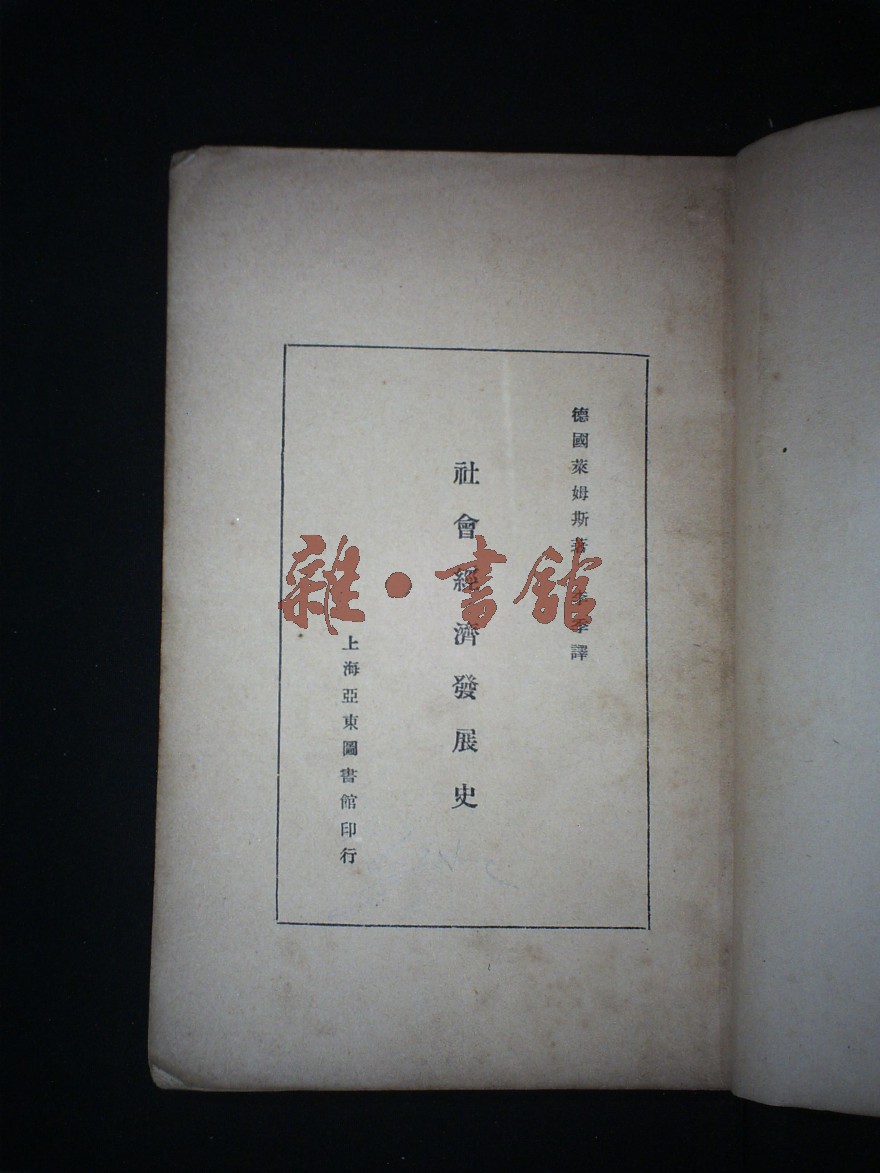 德國萊姆斯著 李季譯
社會經濟發展史
上海亞東圖書館印行
雜·書館